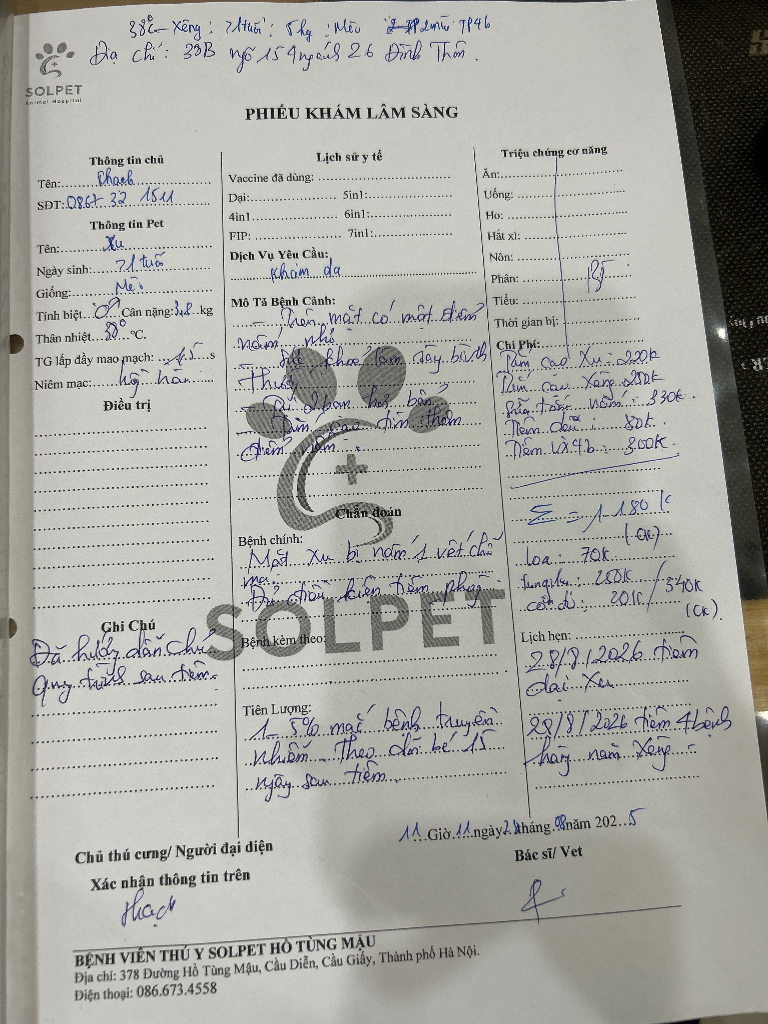 38°C Xêng : >1 tuổi : 5kg : Mèo
Địa chỉ : 33B ngõ 154 ngách 26 Đình Thôn.
SOLPET
Animal Hospital
PHIẾU KHÁM LÂM SÀNG
Thông tin chủ
Tên: Thạch
SĐT: 0867 32 1511
Thông tin Pet
Tên: Xu
Ngày sinh: >1 tuổi
Giống: Mèo
Tính biệt: ♂ Cân nặng: 3,8 kg
Thân nhiệt: 38° °C.
TG lấp đầy mao mạch: 1.5 s
Niêm mạc: hồng hào
Điều trị
Ghi Chú
Đã hướng dẫn chủ
quy trình sau tiêm.
Lịch sử y tế
Vaccine đã dùng:
Dại: 5in1:
4in1 6in1:
FIP: 7in1:
Dịch Vụ Yêu Cầu:
Khám da
Mô Tả Bệnh Cảnh:
- Trên mặt có một điểm
nấm nhỏ.
- Sức khoẻ lâm sàng bình
thường
điểm nấm.
Chẩn đoán
Bệnh chính:
Mặt Xu bị nấm 1 vết
Đủ điều kiện tiêm phòng
SOLPET
Bệnh kèm theo:
Tiên Lượng:
1-5% mắc bệnh truyền
nhiễm. Theo dõi bé 15
ngày sau tiêm.
Triệu chứng cơ năng
Ăn:
Uống:
Ho:
Hắt xì:
Nôn:
Phân:
Tiểu:
Thời gian bị:
Chi Phí:
Tắm cạo Xu: 220K
Tắm cạo Xêng 250K
nấm: 330K
Tiêm dại: 80K
Tiêm VX4b: 300K
Σ = 1.180K
(CK)
loa: 70K
250K
20K / 340K
(CK)
Lịch hẹn:
28/8/2026 tiêm
dại Xu
28/8/2026 tiêm 4 bệnh
hàng năm Xêng
11 Giờ 11 ngày 28 tháng 08 năm 2025
Chủ thú cưng/ Người đại diện
Xác nhận thông tin trên
Thạch
Bác sĩ/ Vet
BỆNH VIỆN THÚ Y SOLPET HỒ TÙNG MẬU
Địa chỉ: 378 Đường Hồ Tùng Mậu, Cầu Diễn, Cầu Giấy, Thành phố Hà Nội.
Điện thoại: 086.673.4558